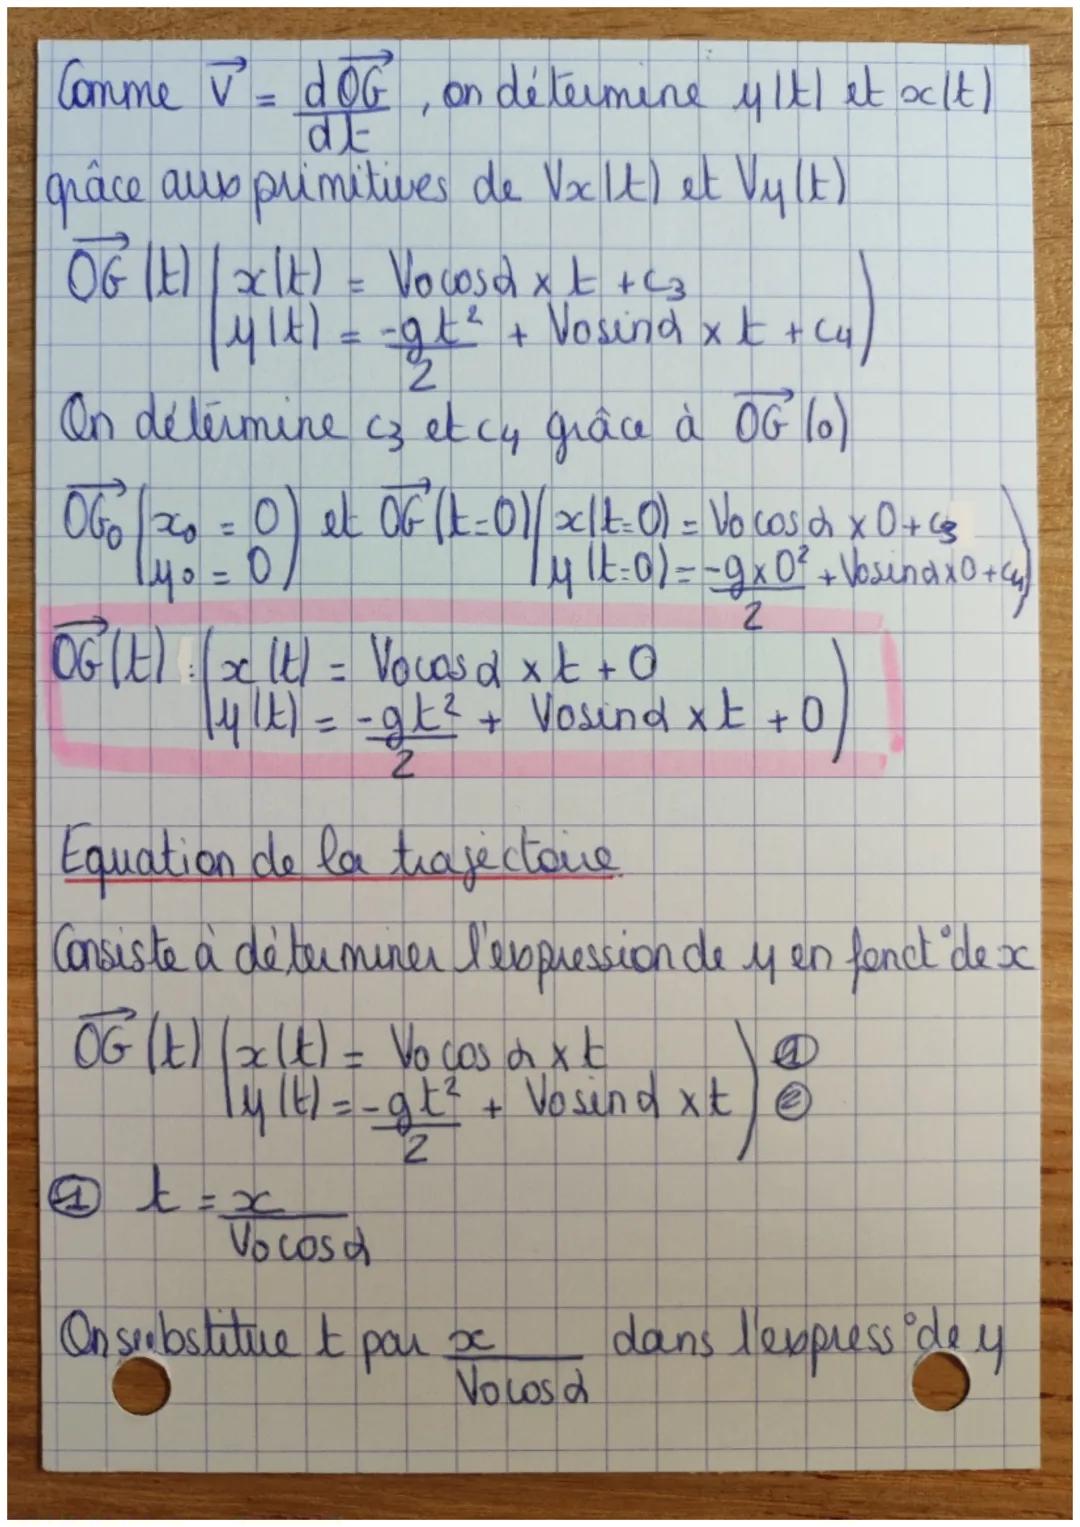 Comme V⃗ = dOG⃗/dt, on détermine y(t) et x(t)
grâce aux primitives de Vx(t) et Vy(t)
OG⃗(t) ( x(t) = V₀cosα × t + c₃
y(t) = -gt²/2 + V₀sinα × t + c₄ )
On détermine c₃ et c₄ grâce à OG⃗(0)
OG₀⃗ ( x₀ = 0 ) et OG⃗(t=0) ( x(t=0) = V₀cosα × 0 + c₃
y₀ = 0 ) y(t=0) = -g×0²/2 + V₀sinα×0 + c₄ )
OG⃗(t) : ( x(t) = V₀cosα × t + 0
y(t) = -gt²/2 + V₀sinα × t + 0 )
Equation de la trajectoire
Consiste à déterminer l'expression de y en fonct° de x
OG⃗(t) ( x(t) = V₀cosα × t ) ①
y(t) = -gt²/2 + V₀sinα × t ) ②
① t = x/V₀cosα
On substitue t par x/V₀cosα dans l'express° de y